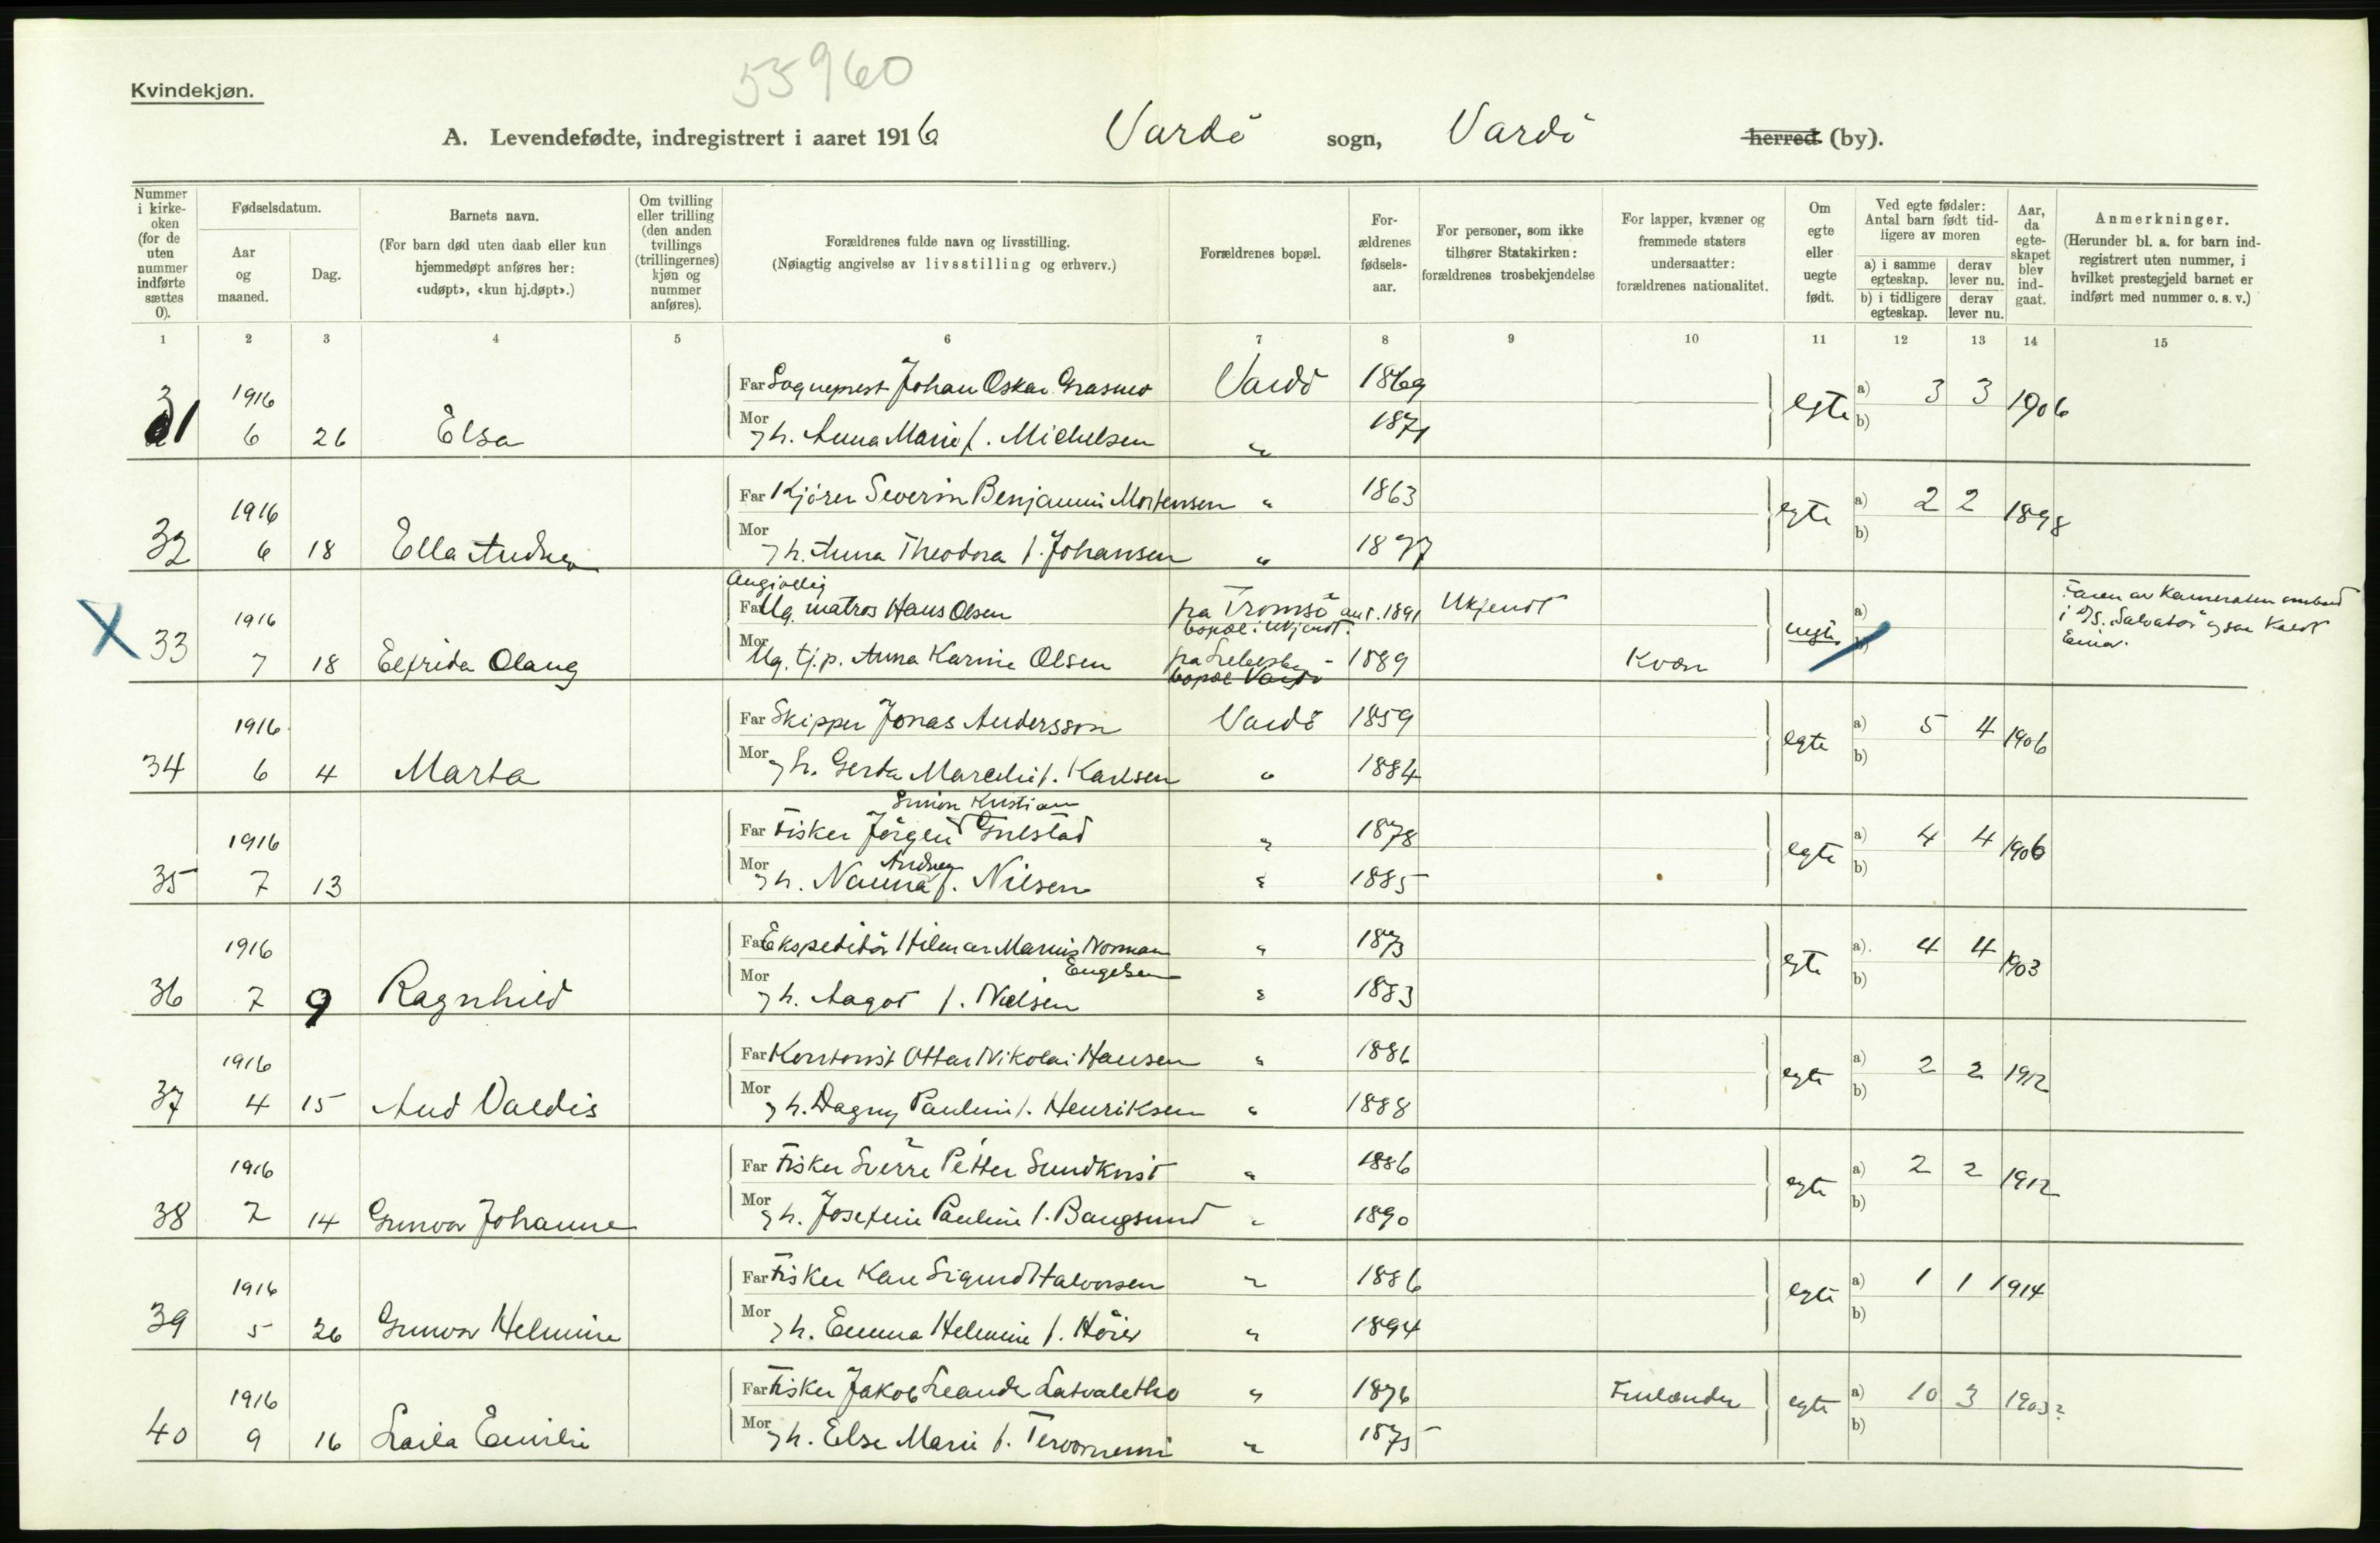 55960
Kvindekjøn.
A. Levendefødte, indregistrert i aaret 1916 Vardö sogn, Vardö herred (by).
Nummer i kirke-oken (for de uten nummer indførte sættes 0).
Fødselsdatum.
Aar og maaned.
Dag.
Barnets navn.
(For barn død uten daab eller kun hjemmedøpt anføres her: «udøpt», «kun hj.døpt».)
Om tvilling eller trilling (den anden tvillings (trillingernes) kjøn og nummer anføres).
Forældrenes fulde navn og livsstilling.
(Nøiagtig angivelse av livsstilling og erhverv.)
Forældrenes bopæl.
For-ældrenes fødsels-aar.
For personer, som ikke tilhører Statskirken: forældrenes trosbekjendelse
For lapper, kvæner og fremmede staters undersaatter: forældrenes nationalitet.
Om egte eller uegte født.
Ved egte fødsler: Antal barn født tid-ligere av moren
a) i samme egteskap.
derav lever nu.
b) i tidligere egteskap.
derav lever nu.
Aar, da egte-skapet blev ind-gaat.
Anmerkninger.
(Herunder bl. a. for barn ind-registrert uten nummer, i hvilket prestegjeld barnet er indført med nummer o. s. v.)
1 2 3 4 5 6 7 8 9 10 11 12 13 14 15
1916 Far Sogneprest Johan Oskar Vardö 1869 a) 3 3 1906
31 6 26 Elsa Mor h. Anna Marie f. Michelsen " 1871 egte b)
1916 Far Kjörer Severin Benjamin Mortensen " 1863 a) 2 2 1898
32 6 18 Ella Andrea Mor h. Anna Theodora f. Johansen " 1877 egte b)
Angivelig
1916 Far Ug. matros Hans Olsen fra Tromsö ant. 1891 Ukjendt a)
bopæl: Ukjendt.
33 7 18 Elfrida Olaug Mor Ug. tj.p. Anna Karine Olsen fra Lebesby - 1889 Kvæn uegte b)
bopæl Vardö
Faren av Kameraten ombord
i D/S. "Salvator" ogsaa kaldt
Einar.
1916 Far Skipper Jonas Andersson Vardö 1859 a) 5 4 1906
34 6 4 Marta Mor h. Gerda f. Karlsen " 1884 egte b)
Simon Kristian
1916 Far Fisker Jörgen Gulstad " 1878 a) 4 4 1906
Andrea
35 7 13 Mor h. Nanna f. Nilsen " 1885 egte b)
1916 Far Ekspeditör Hilmar Marius Norman " 1873 a) 4 4 1903
Engelsen
36 7 9 Ragnhild Mor h. Aagot f. Nielsen " 1883 egte b)
1916 Far Kontorist Ottar Nikolai Hansen " 1886 a) 2 2 1912
37 4 15 Aud Valdis Mor h. Dagny Pauline f. Henriksen " 1888 egte b)
1916 Far Fisker Sverre Petter Sundkvist " 1886 a) 2 2 1912
38 7 14 Gunvor Johanne Mor h. Josefine Pauline f. Bangsund " 1890 egte b)
1916 Far Fisker Karl Sigurd Halvorsen " 1886 a) 1 1 1914
39 5 26 Gunvor Helmine Mor h. Emma Helmine f. " 1894 egte b)
1916 Far Fisker Jakob Leander " 1876 Finlænder a) 10 3 1903?
40 9 16 Laila Emilie Mor h. Else Marie f. " 1875 egte b)